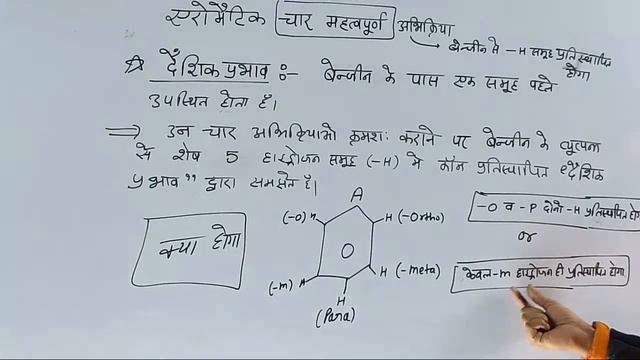 एरोमैटिक चार महत्वपूर्ण अभिक्रिया
बेन्जीन से -H समूह प्रतिस्थापित होगा
दैशिक प्रभाव :- बेन्जीन के पास एक समूह पहले
उपस्थित होता है।
⇒ उन चार अभिक्रियाओ क्रमशः कराने पर बेन्जीन के
से शेष 5 हाइड्रोजन समूह (-H) मे कौन प्रतिस्थापित "दैशिक
प्रभाव" द्वारा समझते है।
क्या होगा
A
(-O) H
H (-Ortho)
O
(-m) H
H (-meta)
H
(Para)
-O व -P दोनो -H प्रतिस्थापित होगा
or
केवल -m हाइड्रोजन ही प्रतिस्थापित होगा